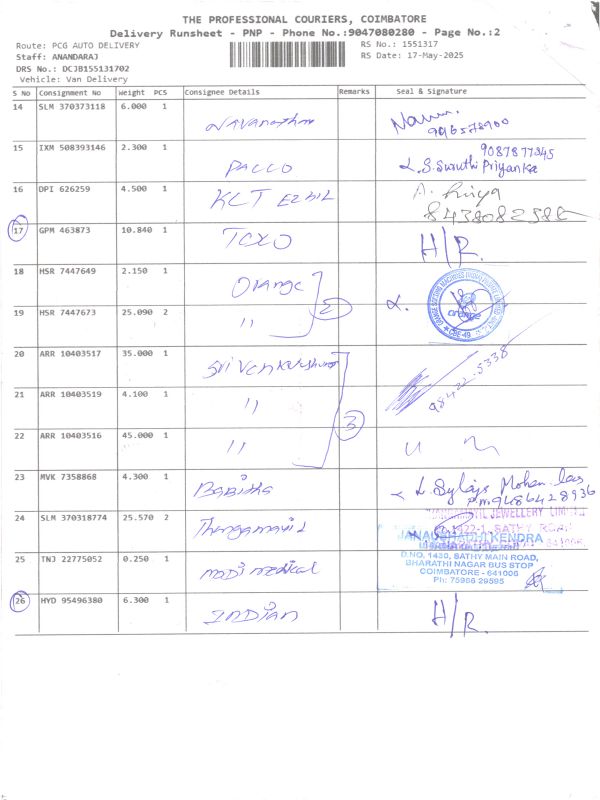 THE PROFESSIONAL COURIERS, COIMBATORE
Delivery Runsheet - PNP - Phone No.:9047080280 - Page No.:2
Route: PCG AUTO DELIVERY
RS No.: 1551317
Staff: ANANDARAJ
RS Date: 17-May-2025
DRS No.: DCJB155131702
Vehicle: Van Delivery
S No Consignment No Weight PCS Consignee Details Remarks Seal & Signature
14 SLM 370373118 6.000 1
15 IXM 508393146 2.300 1 PACCO 9087877345
S. Swuthi Priyanka
16 DPI 626259 4.500 1 KCT EZHIL
17 GPM 463873 10.840 1 TCXO H/R.
18 HSR 7447649 2.150 1 Orange
19 HSR 7447673 25.090 2 " 2
orange
CBE-49
20 ARR 10403517 35.000 1
21 ARR 10403519 4.100 1 "
22 ARR 10403516 45.000 1 " 3
23 MVK 7358868 4.300 1 Babitha Mohan
9486428936
24 SLM 370318774 25.570 2 Thangamayil
JEWELLERY LIMITED
SATHY ROAD
JANAUSHADHI KENDRA
25 TNJ 22775052 0.250 1 modi medical
D.NO, 1430, SATHY MAIN ROAD,
BHARATHI NAGAR BUS STOP
COIMBATORE - 641006
Ph: 75986 29595
26 HYD 95496380 6.300 1 INDIAN H/R.